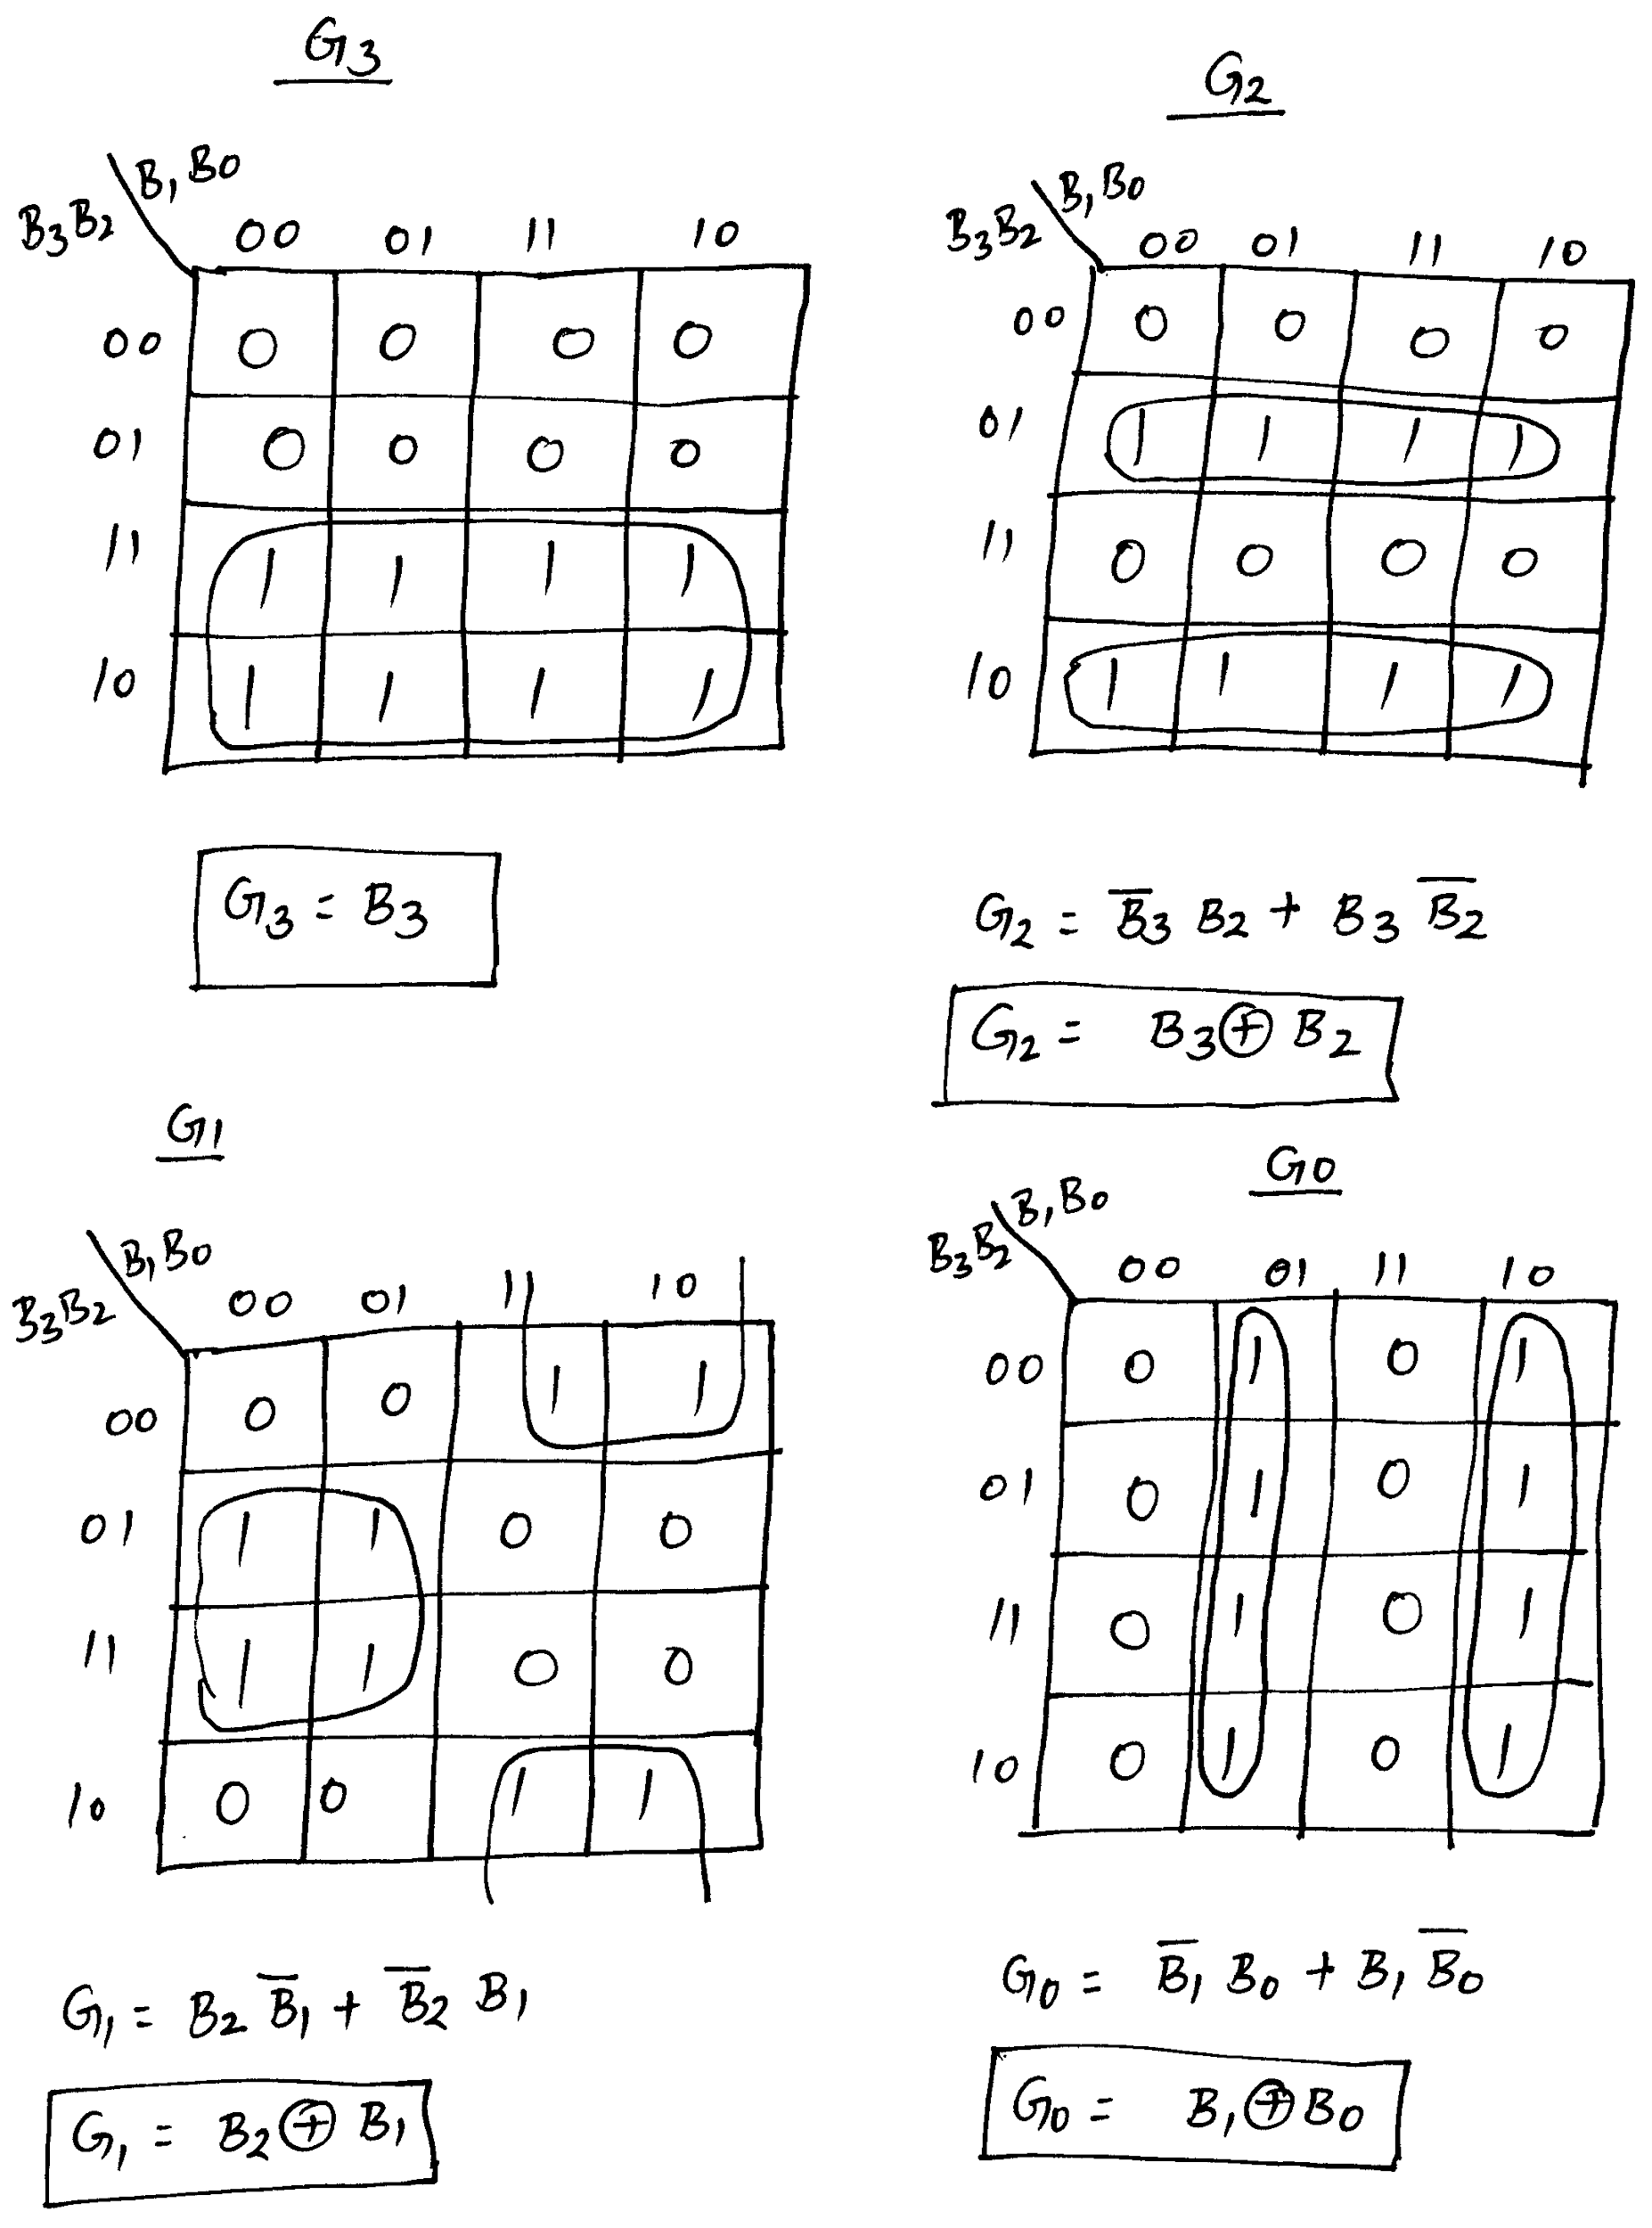 G3
B1 B0
B3 B2
00 01 11 10
00 0 0 0 0
01 0 0 0 0
11 1 1 1 1
10 1 1 1 1
G3 = B3
G2
B1 B0
B3 B2
00 01 11 10
00 0 0 0 0
01 1 1 1 1
11 0 0 0 0
10 1 1 1 1
G2 = B̅3 B2 + B3 B̅2
G2 = B3 ⊕ B2
G1
B1 B0
B3 B2
00 01 11 10
00 0 0 1 1
01 1 1 0 0
11 1 1 0 0
10 0 0 1 1
G1 = B2 B̅1 + B̅2 B1
G1 = B2 ⊕ B1
G0
B1 B0
B3 B2
00 01 11 10
00 0 1 0 1
01 0 1 0 1
11 0 1 0 1
10 0 1 0 1
G0 = B̅1 B0 + B1 B̅0
G0 = B1 ⊕ B0